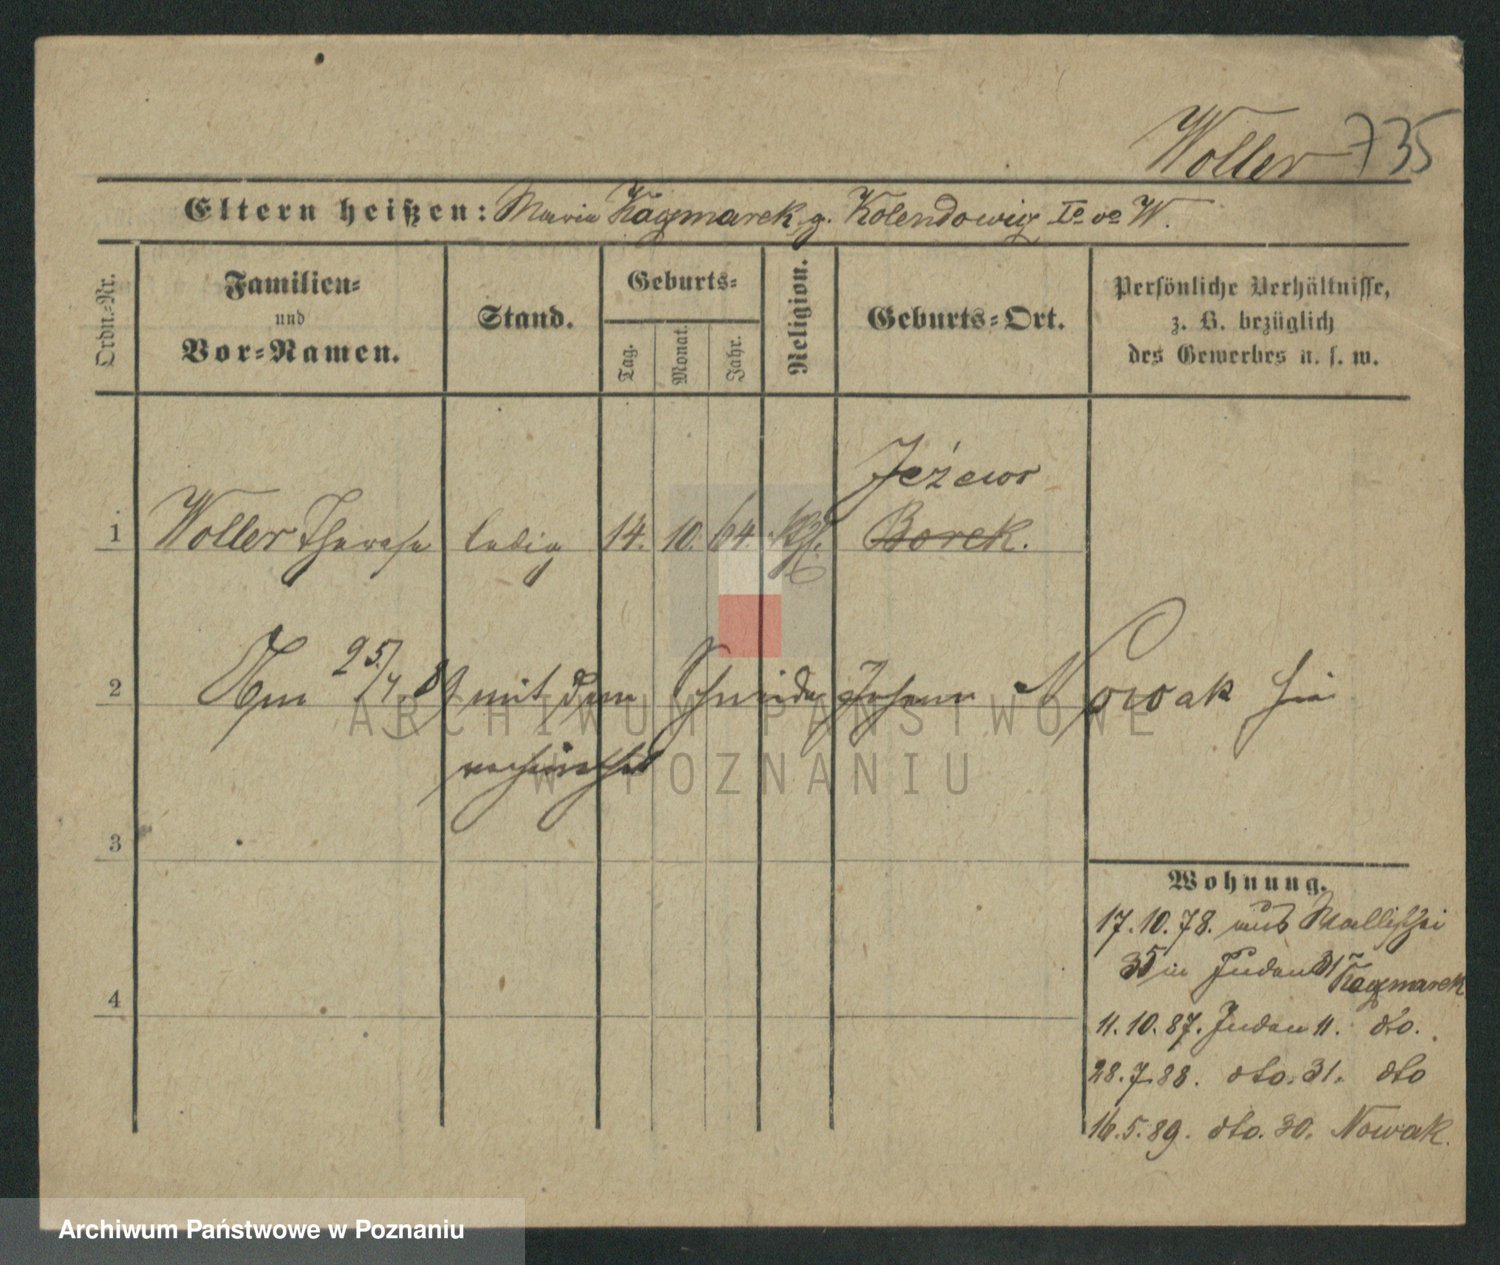 Woller 735
Eltern heißen: Maria Kaczmarek g. Kolendowicz Ie vo W.
Ordn.-Nr.
Familien-
und
Vor-Namen.
Stand.
Geburts-
Tag.
Monat.
Jahr.
Religion.
Geburts-Ort.
Persönliche Verhältnisse,
z. B. bezüglich
des Gewerbes u. s. w.
Jeżewo
1 Woller Therese ledig 14. 10. 64. Borek.
2 Am 25/4 89 mit dem Schneider Johann Nowak hie
verheirathet
3
4
Wohnung.
17.10.78. aus Wallischei
35 in Juden 31 Kaczmarek
11.10.87. Juden 11. dto.
28.7.88. dto. 31. dto
16.5.89. dto. 30. Nowak.
ARCHIWUM PAŃSTWOWE
W POZNANIU
Archiwum Państwowe w Poznaniu